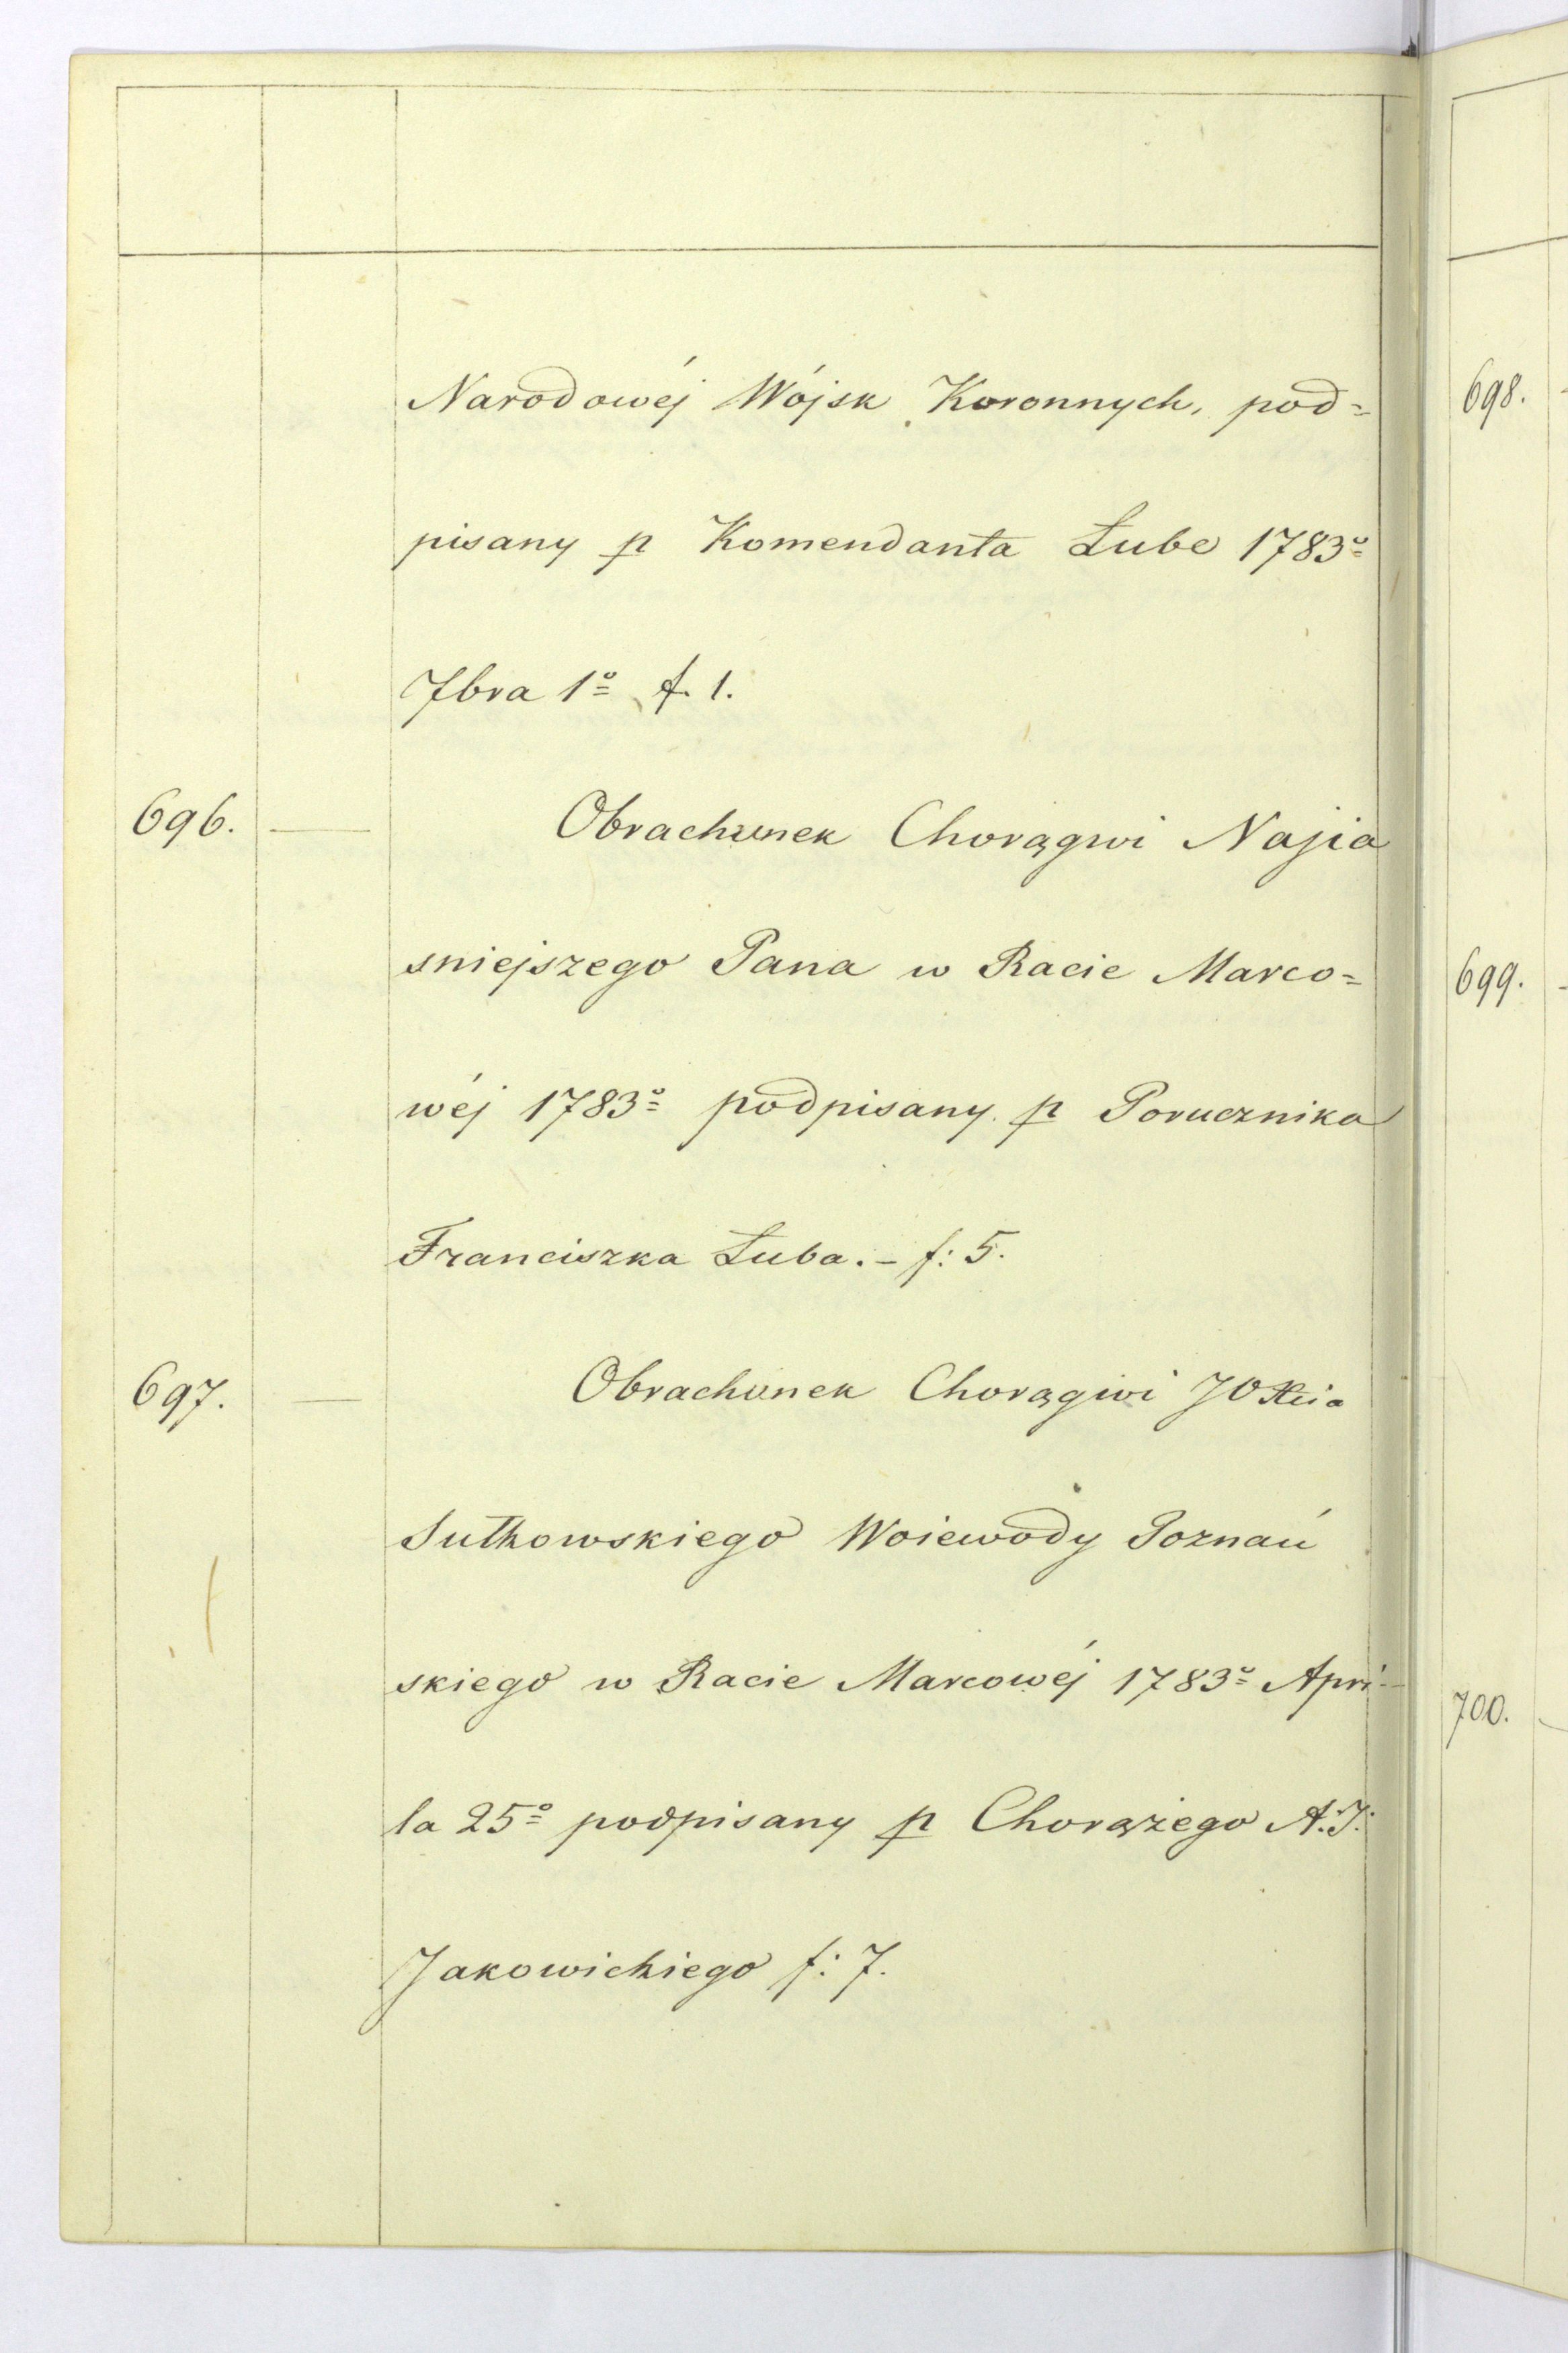 Narodowéj Wójsk Koronnych, pod=
pisany p Komendanta Łubę 1783º
7bra 1º f. 1.
696. — Obrachunek Chorągwi Najia
sniejszego Pana w Racie Marco=
wéj 1783º podpisany p Porucznika
Franciszka Łuba. - f: 5.
697. — Obrachunek Chorągwi JO Xcia
Sułkowskiego Woiewody Poznań
skiego w Racie Marcowéj 1783º Apri-
la 25º podpisany p Chorążego A: J:
Jakowickiego f: 7.
698.
699.
700.